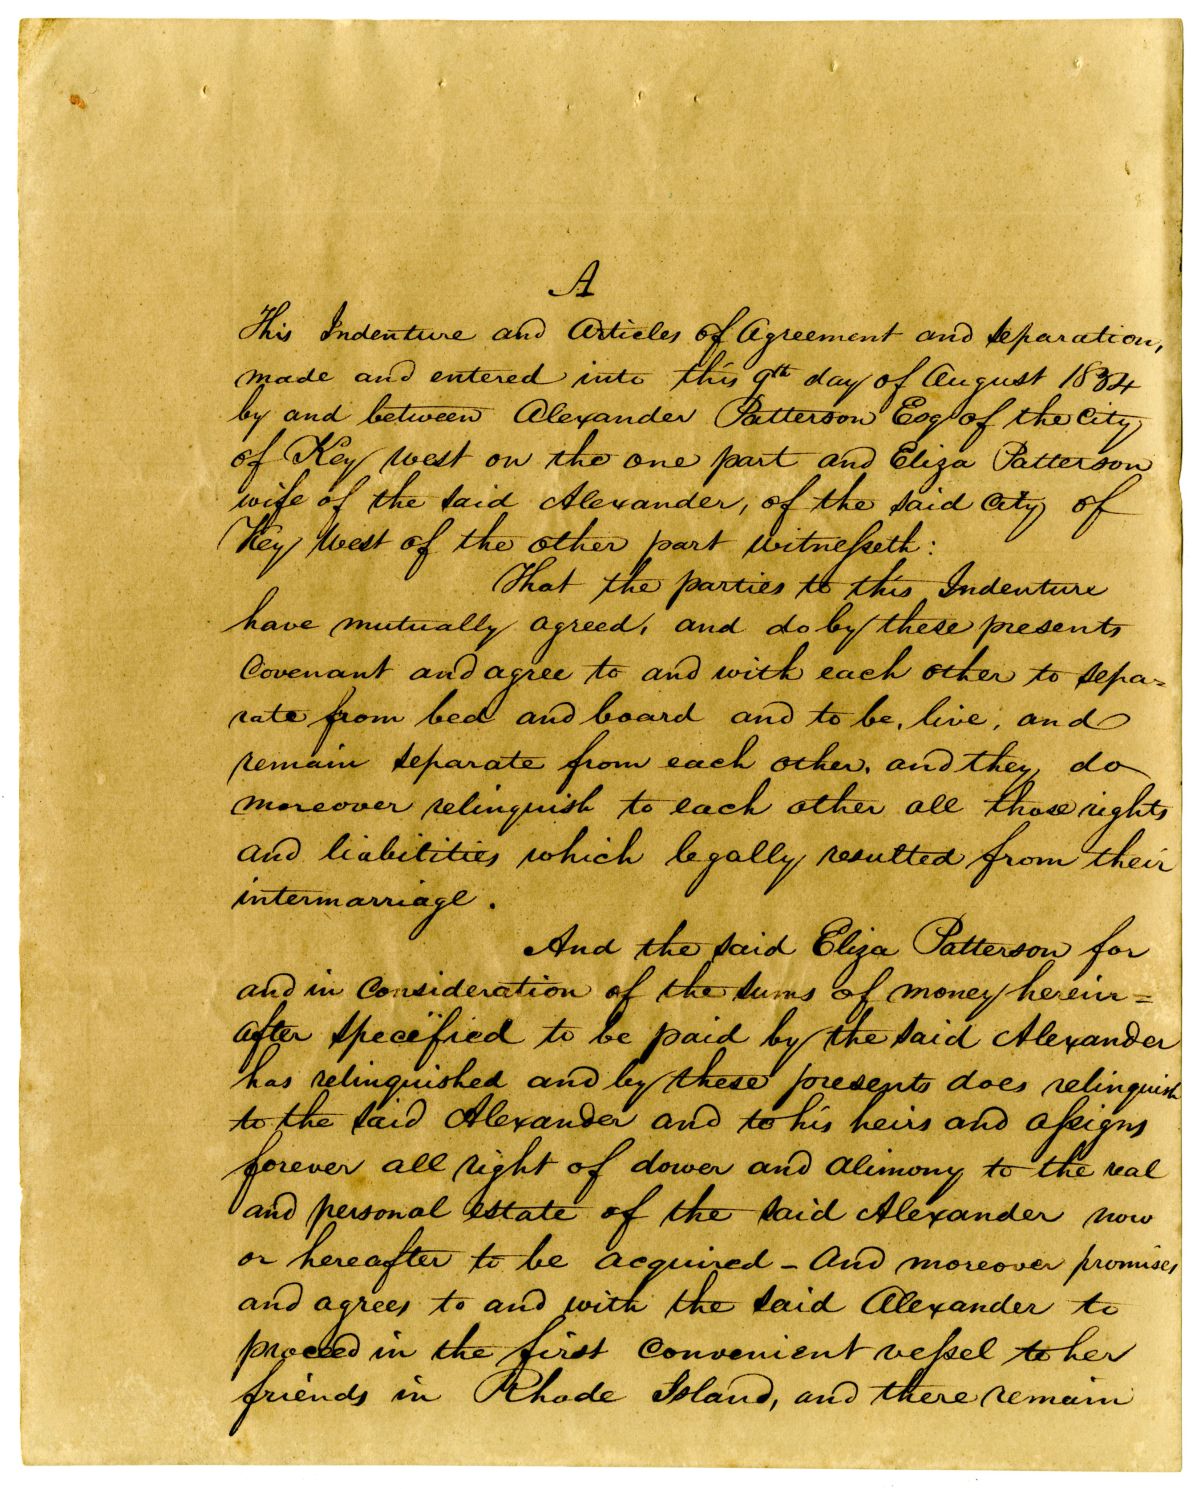 A
This Indenture and Articles of Agreement and separation,
made and entered into this 9th day of August 1834
by and between Alexander Patterson Esq of the City
of Key West on the one part and Eliza Patterson
wife of the said Alexander, of the said City of
Key West of the other part witneſseth:
That the parties to this Indenture
have mutually agreed, and do by these presents
Covenant and agree to and with each other to sepa=
rate from bed and board and to be, live, and
remain separate from each other, and they do
moreover relinquish to each other all those rights
and liabilities which legally resulted from their
intermarriage.
And the said Eliza Patterson for
and in Consideration of the sums of money herein=
after specified to be paid by the said Alexander
has relinquished and by these presents does relinquish
to the said Alexander and to his heirs and aſsigns
forever all right of dower and alimony to the real
and personal estate of the said Alexander now
or hereafter to be acquired - And moreover promises
and agrees to and with the said Alexander to
proceed in the first Convenient veſsel to her
friends in Rhode Island, and there remain